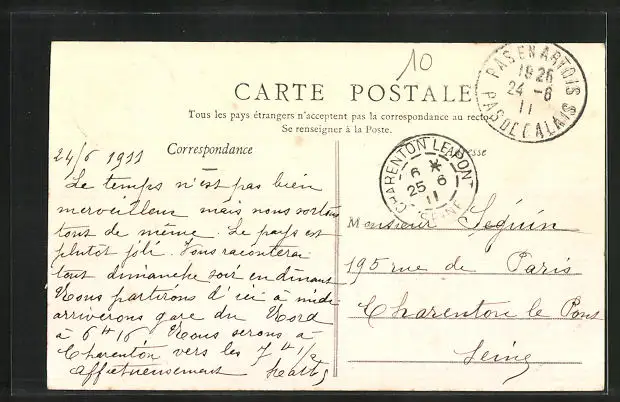 10
CARTE POSTALE
Tous les pays étrangers n'acceptent pas la correspondance au recto
Se renseigner à la Poste.
PAS EN ARTOIS
1926
24 - 6
11
PAS DE CALAIS
CHARENTON LE PONT
6 *
25 6
11
SEINE
24/6 1911
Correspondance
Le temps n'est pas bien
merveilleux mais nous sortons
tout de même. Le pays est
plutôt joli. Vous raconterai
tout dimanche soir en dinant
Nous partirons d'ici à midi
arriverons gare du Nord
à 6H16 Nous serons à
Charenton vers les 7H1/2
Affectueusement
Adresse
Monsieur Séguin
195 rue de Paris
Charenton le Pont
Seine